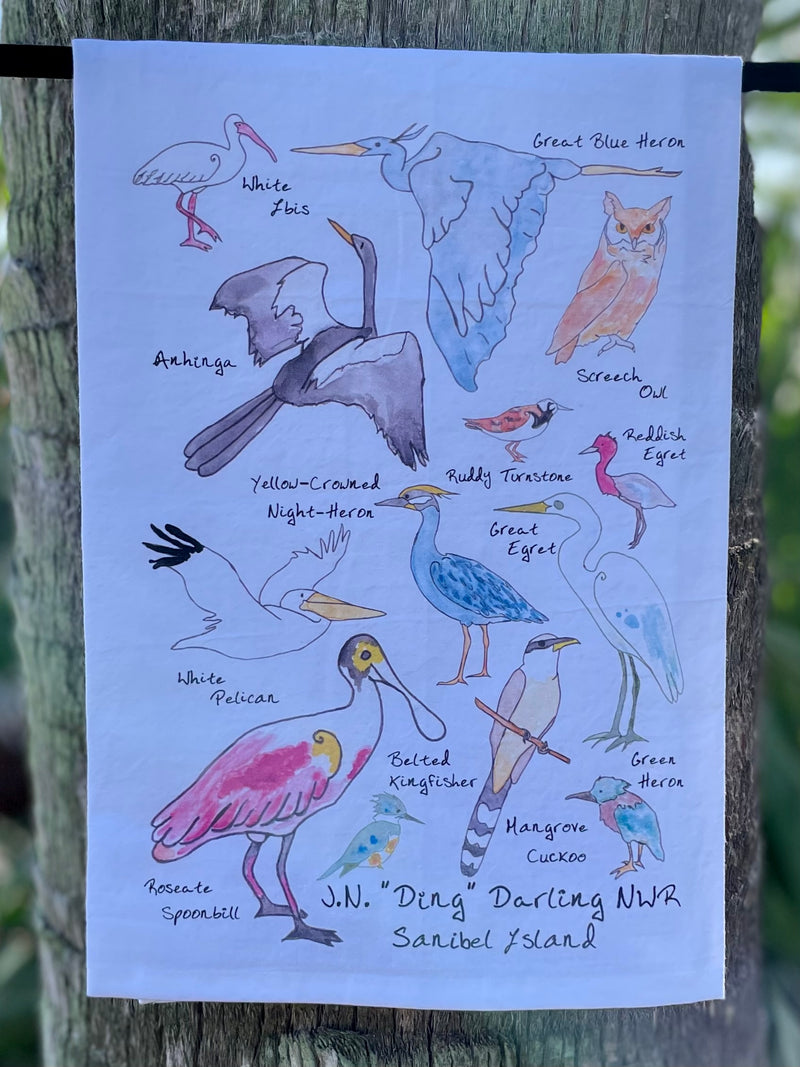 Great Blue Heron
White
Ibis
Anhinga
Screech
Owl
Reddish
Egret
Ruddy Turnstone
Yellow-Crowned
Night-Heron
Great
Egret
White
Pelican
Belted
Kingfisher
Green
Heron
Mangrove
Cuckoo
Roseate
Spoonbill
J.N. "Ding" Darling NWR
Sanibel Island